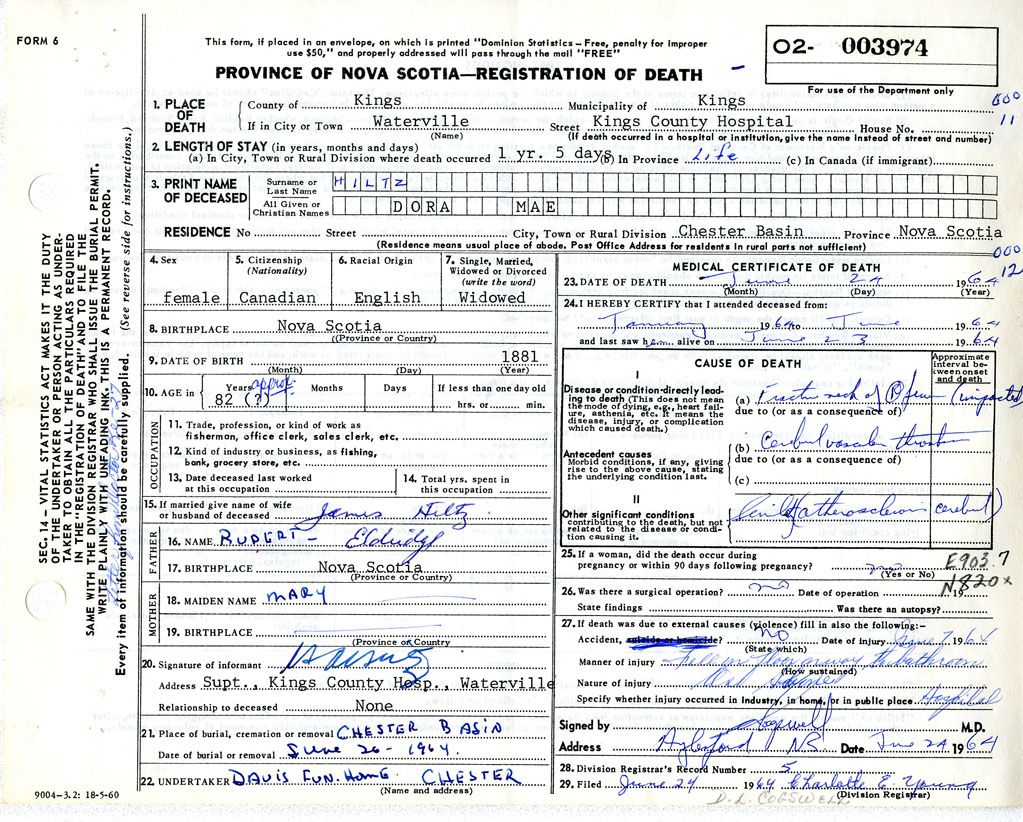 FORM 6
This form, if placed in an envelope, on which is printed "Dominion Statistics – Free, penalty for improper
use $50," and properly addressed will pass through the mail "FREE"
O2- 003974
For use of the Department only
PROVINCE OF NOVA SCOTIA—REGISTRATION OF DEATH
000
11
1. PLACE OF DEATH
County of Kings Municipality of Kings
If in City or Town Waterville Street Kings County Hospital House No.
(Name) (If death occurred in a hospital or institution, give the name instead of street and number)
2. LENGTH OF STAY (in years, months and days)
(a) In City, Town or Rural Division where death occurred 1 yr. 5 days (b) In Province Life (c) In Canada (if immigrant)
3. PRINT NAME OF DECEASED
Surname or Last Name HILTZ
All Given or Christian Names DORA MAE
RESIDENCE No Street City, Town or Rural Division Chester Basin Province Nova Scotia
(Residence means usual place of abode. Post Office Address for residents in rural parts not sufficient)
000
12
4. Sex female
5. Citizenship (Nationality) Canadian
6. Racial Origin English
7. Single, Married, Widowed or Divorced (write the word) Widowed
8. BIRTHPLACE Nova Scotia
((Province or Country)
9. DATE OF BIRTH 1881
(Month) (Day) (Year)
10. AGE in Years approx. 82 (?) Months Days If less than one day old hrs. or min.
OCCUPATION
11. Trade, profession, or kind of work as
fisherman, office clerk, sales clerk, etc.
12. Kind of industry or business, as fishing,
bank, grocery store, etc.
13. Date deceased last worked at this occupation
14. Total yrs. spent in this occupation
15. If married give name of wife
or husband of deceased James Hiltz
FATHER
16. NAME RUPERT – Eldridge
17. BIRTHPLACE Nova Scotia
(Province or Country)
MOTHER
18. MAIDEN NAME MARY
19. BIRTHPLACE
(Province or Country
20. Signature of informant
Address Supt., Kings County Hosp., Waterville
Relationship to deceased None
21. Place of burial, cremation or removal CHESTER BASIN
Date of burial or removal June 26 - 1964.
22. UNDERTAKER DAVIS FUN. HOME CHESTER
(Name and address)
9004–3.2: 18-5-60
MEDICAL CERTIFICATE OF DEATH
23. DATE OF DEATH June 24 1964
(Month) (Day) (Year)
24. I HEREBY CERTIFY that I attended deceased from:
January 1964 to June 1964
and last saw her alive on June 23 1964
CAUSE OF DEATH
Approximate interval between onset and death
I
Disease or condition directly leading to death (This does not mean the mode of dying, e.g., heart failure, asthenia, etc. It means the disease, injury, or complication which caused death.)
(a) neck of femur (impacted)
due to (or as a consequence of)
Antecedent causes
Morbid conditions, if any, giving rise to the above cause, stating the underlying condition last.
(b)
due to (or as a consequence of)
(c)
II
Other significant conditions
contributing to the death, but not related to the disease or condition causing it.
Senile (atherosclerosis cerebral)
25. If a woman, did the death occur during
pregnancy or within 90 days following pregnancy? no
(Yes or No)
E903.7
N820x
26. Was there a surgical operation? no Date of operation 19
State findings Was there an autopsy?
27. If death was due to external causes (violence) fill in also the following:–
Accident, suicide or homicide? no Date of injury June 7, 1964
(State which)
Manner of injury Fell on floor on way to bathroom
(How sustained)
Nature of injury
Specify whether injury occurred in Industry, in home, or in public place. Hospital
Signed by Cogswell M.D.
Address Aylesford NS Date June 24 1964
28. Division Registrar's Record Number 5
29. Filed June 24 1964 Charlotte E Young
(Division Registrar)
D. L. COGSWELL
SEC. 14 – VITAL STATISTICS ACT MAKES IT THE DUTY
OF THE UNDERTAKER OR PERSON ACTING AS UNDER-
TAKER TO OBTAIN ALL THE PARTICULARS REQUIRED
IN THE "REGISTRATION OF DEATH" AND TO FILE THE
SAME WITH THE DIVISION REGISTRAR WHO SHALL ISSUE THE BURIAL PERMIT.
WRITE PLAINLY WITH UNFADING INK. THIS IS A PERMANENT RECORD.
Every item of information should be carefully supplied. (See reverse side for instructions.)